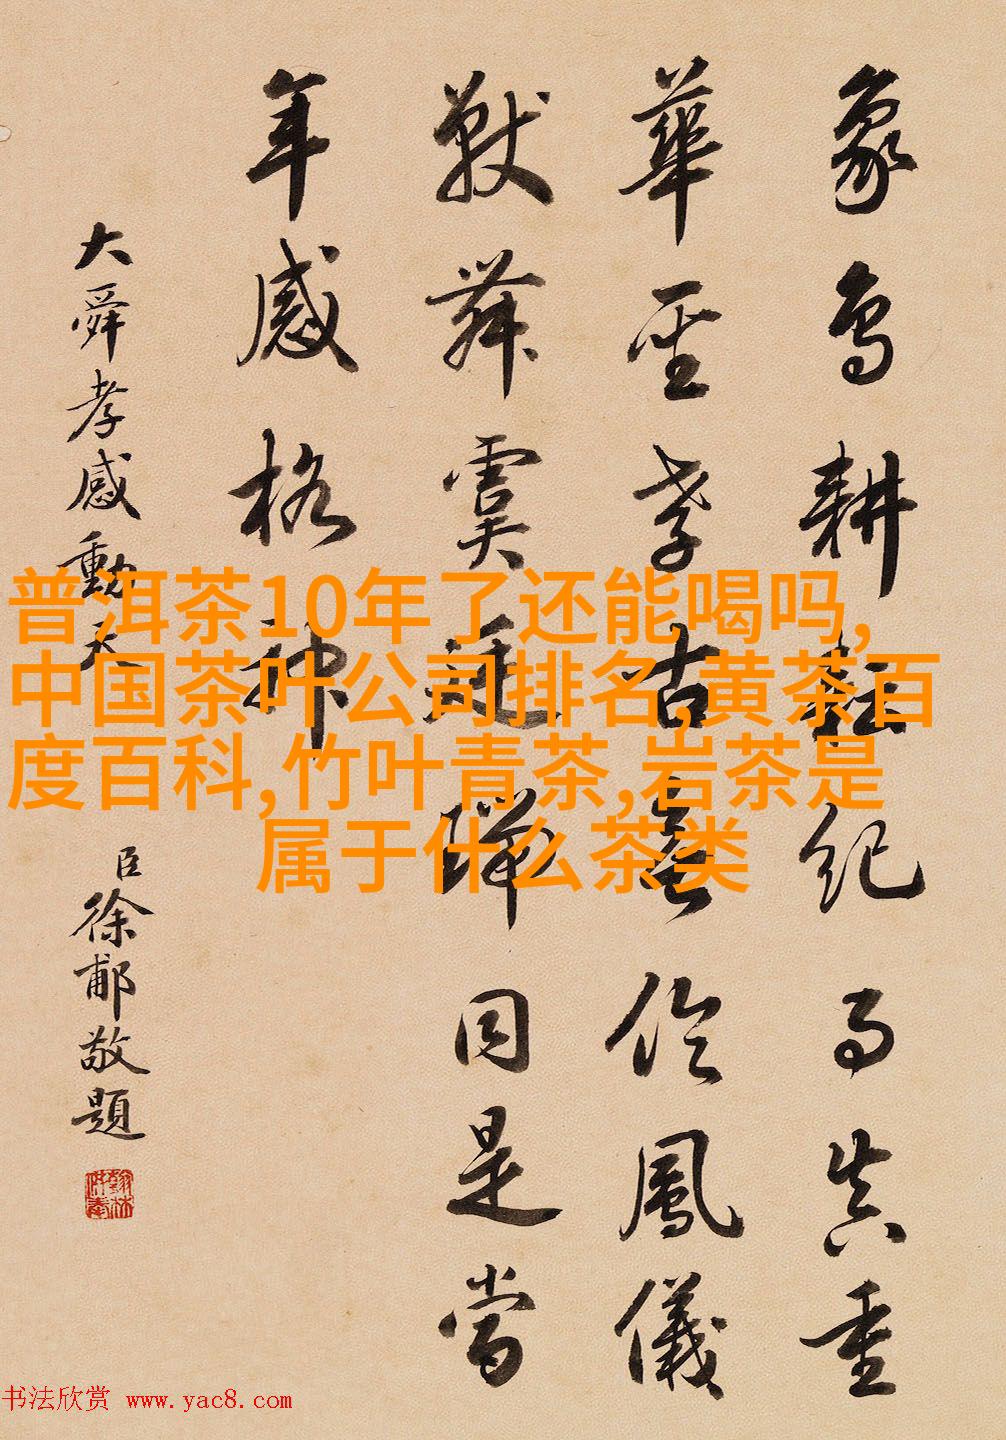 象鳥耕耘紀事真重
華至孝古無倫鳳儀
獸舞虞廷同是當
年感格神
大舜孝感動天
臣徐郙敬題
普洱茶10年了还能喝吗,
中国茶叶公司排名,黄茶百
度百科,竹叶青茶,岩茶是
属于什么茶类
书法欣赏 www.yac8.com